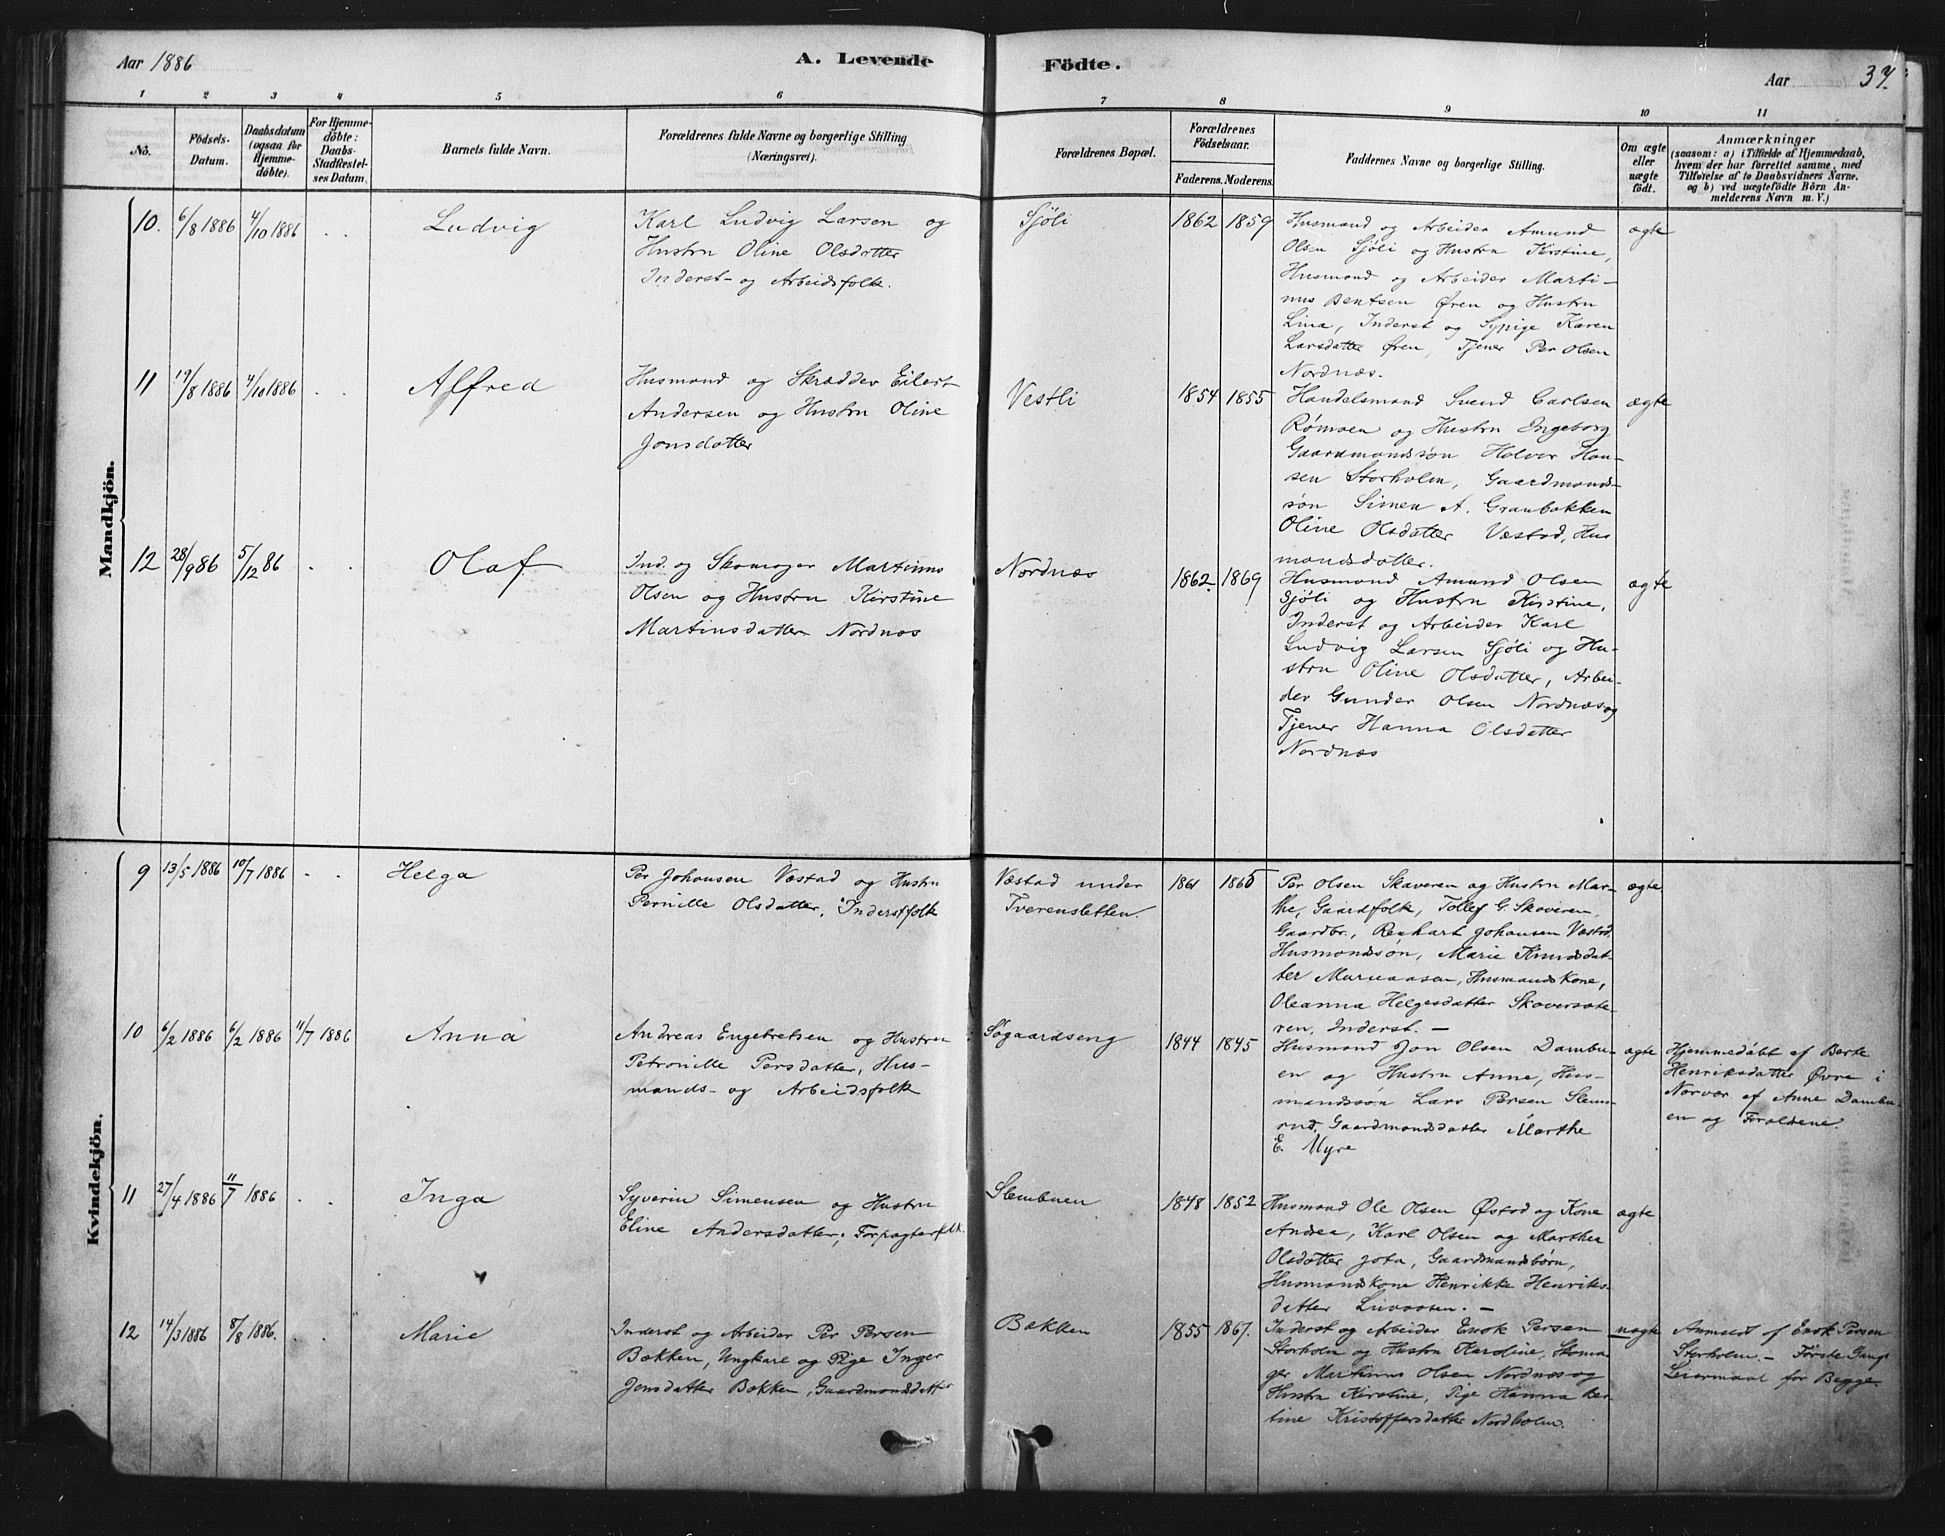 Aar 1886
A. Levende
Födte.
Aar
37.
1 2 3 4 5 6 7 8 9 10 11
No.
Födsels-
Datum.
Daabsdatum
(ogsaa for
Hjemme-
döbte).
For Hjemme-
döbte:
Daabs-
Stadfæstel-
ses Datum.
Barnets fulde Navn.
Forældrenes fulde Navne og borgerlige Stilling
(Næringsvei).
Forældrenes Bopæl.
Forældrenes
Födselsaar.
Faderens. Moderens.
Faddernes Navne og borgerlige Stilling.
Om ægte
eller
uægte
födt.
Anmærkninger
(saasom: a) i Tilfælde af Hjemmedaab,
hvem der har forrettet samme, med
Tilföielse af to Daabsvidners Navne,
og b) ved uægtefödte Börn An-
melderens Navn m. V.)
Mandkjön.
10. 6/8 1886 4/10 1886 . .
Ludvig
Karl Ludvig Larsen og
Hustru Oline Olsdatter
Inderst- og Arbeidsfolk.
Sjöli
1862 1859
Husmand og Arbeider Amund
Olsen Sjöli og Hustru Kirstine,
Husmand og Arbeider Marti-
nus Bentsen Øren og Hustru
Lina, Inderst og Sypige Karen
Larsdatter Øren, Tjener Per Olsen
Nordnæs.
ægte
11 19/8 1886 4/10 1886 . .
Alfred
Husmand og Skrædder Eilert
Andersen og Hustru Oline
Jonsdatter
Vestli
1854 1855
Handelsmand Svend Carlsen
Römoen og Hustru Ingeborg
Gaardmandssön Halvor Han-
sen Storholm, Gaardmands-
sön Simen A. Granbakken
Oline Olsdatter Væstad, Hus
mandsdatter.
ægte
12 28/9 86 5/12 86 . .
Olaf
Ind. og Skomager Martinus
Olsen og Hustru Kirstine
Martinsdatter Nordnæs
Nordnæs
1862. 1869
Husmand Amund Olsen
Sjöli og Hustru Kirstine,
Inderst og Arbeider Karl
Ludvig Larsen Sjöli og Hu-
stru Oline Olsdatter, Arbei-
der Gunder Olsen Nordnæs og
Tjener Hanna Olsdatter
Nordnæs
ægte
Kvindekjön.
9 13/5 1886 10/7 1886 . .
Helga
Per Johansen Væstad og Hustru
Pernille Olsdatter, Inderstfolk
Væstad under
Tverensletten.
1861 1865
Per Olsen Skaveren og Hustru Mar-
the, Gaardfolk, Tollef G. Skaveren,
Gaardbr., Renhart Johansen Væstad,
Husmandssön, Marie Knudsdat-
ter Maruaasen, Husmandskone,
Oleanna Helgesdatter Skaversæte-
ren, Inderst. —
ægte
10 6/2 1886 6/2 1886 11/7 1886
Anna
Andreas Engebretsen og Hustru
Petronille Persdatter, Hus-
mands- og Arbeidsfolk
Søgaardseng
1844 1845
Husmand Jon Olsen Dambu-
en og Hustru Anne, Hus-
mandssön Lars Persen Slem-
rud, Gaardmandsdatter Marthe
E. Myre
ægte
Hjemmedöbt af Berte
Henriksdatter Øvre i
Nærvær af Anne Dambu-
en og Forældrene.
11 27/4 1886 11/7 1886 . .
Inga
Syverin Simensen og Hustru
Eline Andersdatter, Forpagterfolk.
Slembuen
1848 1852
Husmand Ole Olsen Østad og Kone
Andrea, Karl Olsen og Marthea
Olsdatter Jota, Gaardmandsbörn,
Husmandskone Henrikke Henriks-
datter Livaasen. —
ægte
12 14/3 1886 8/8 1886. . .
Marie
Inderst og Arbeider Per Persen
Bækken, Ungkarl og Pige Inger
Jonsdatter Bækken, Gaardmandsdatter
Bækken
1855 1867.
Inderst og Arbeider Enok Persen
Storholm og Hustru Karoline, Skoma-
ger Martinus Olsen Nordnæs og
Hustru Kirstine, Pige Hanna Ber-
tine Kristoffersdatter Nordholm.
uægte
Anmeldt af Enok Persen
Storholm. — Förste Gangs
Leiermaal for Begge.